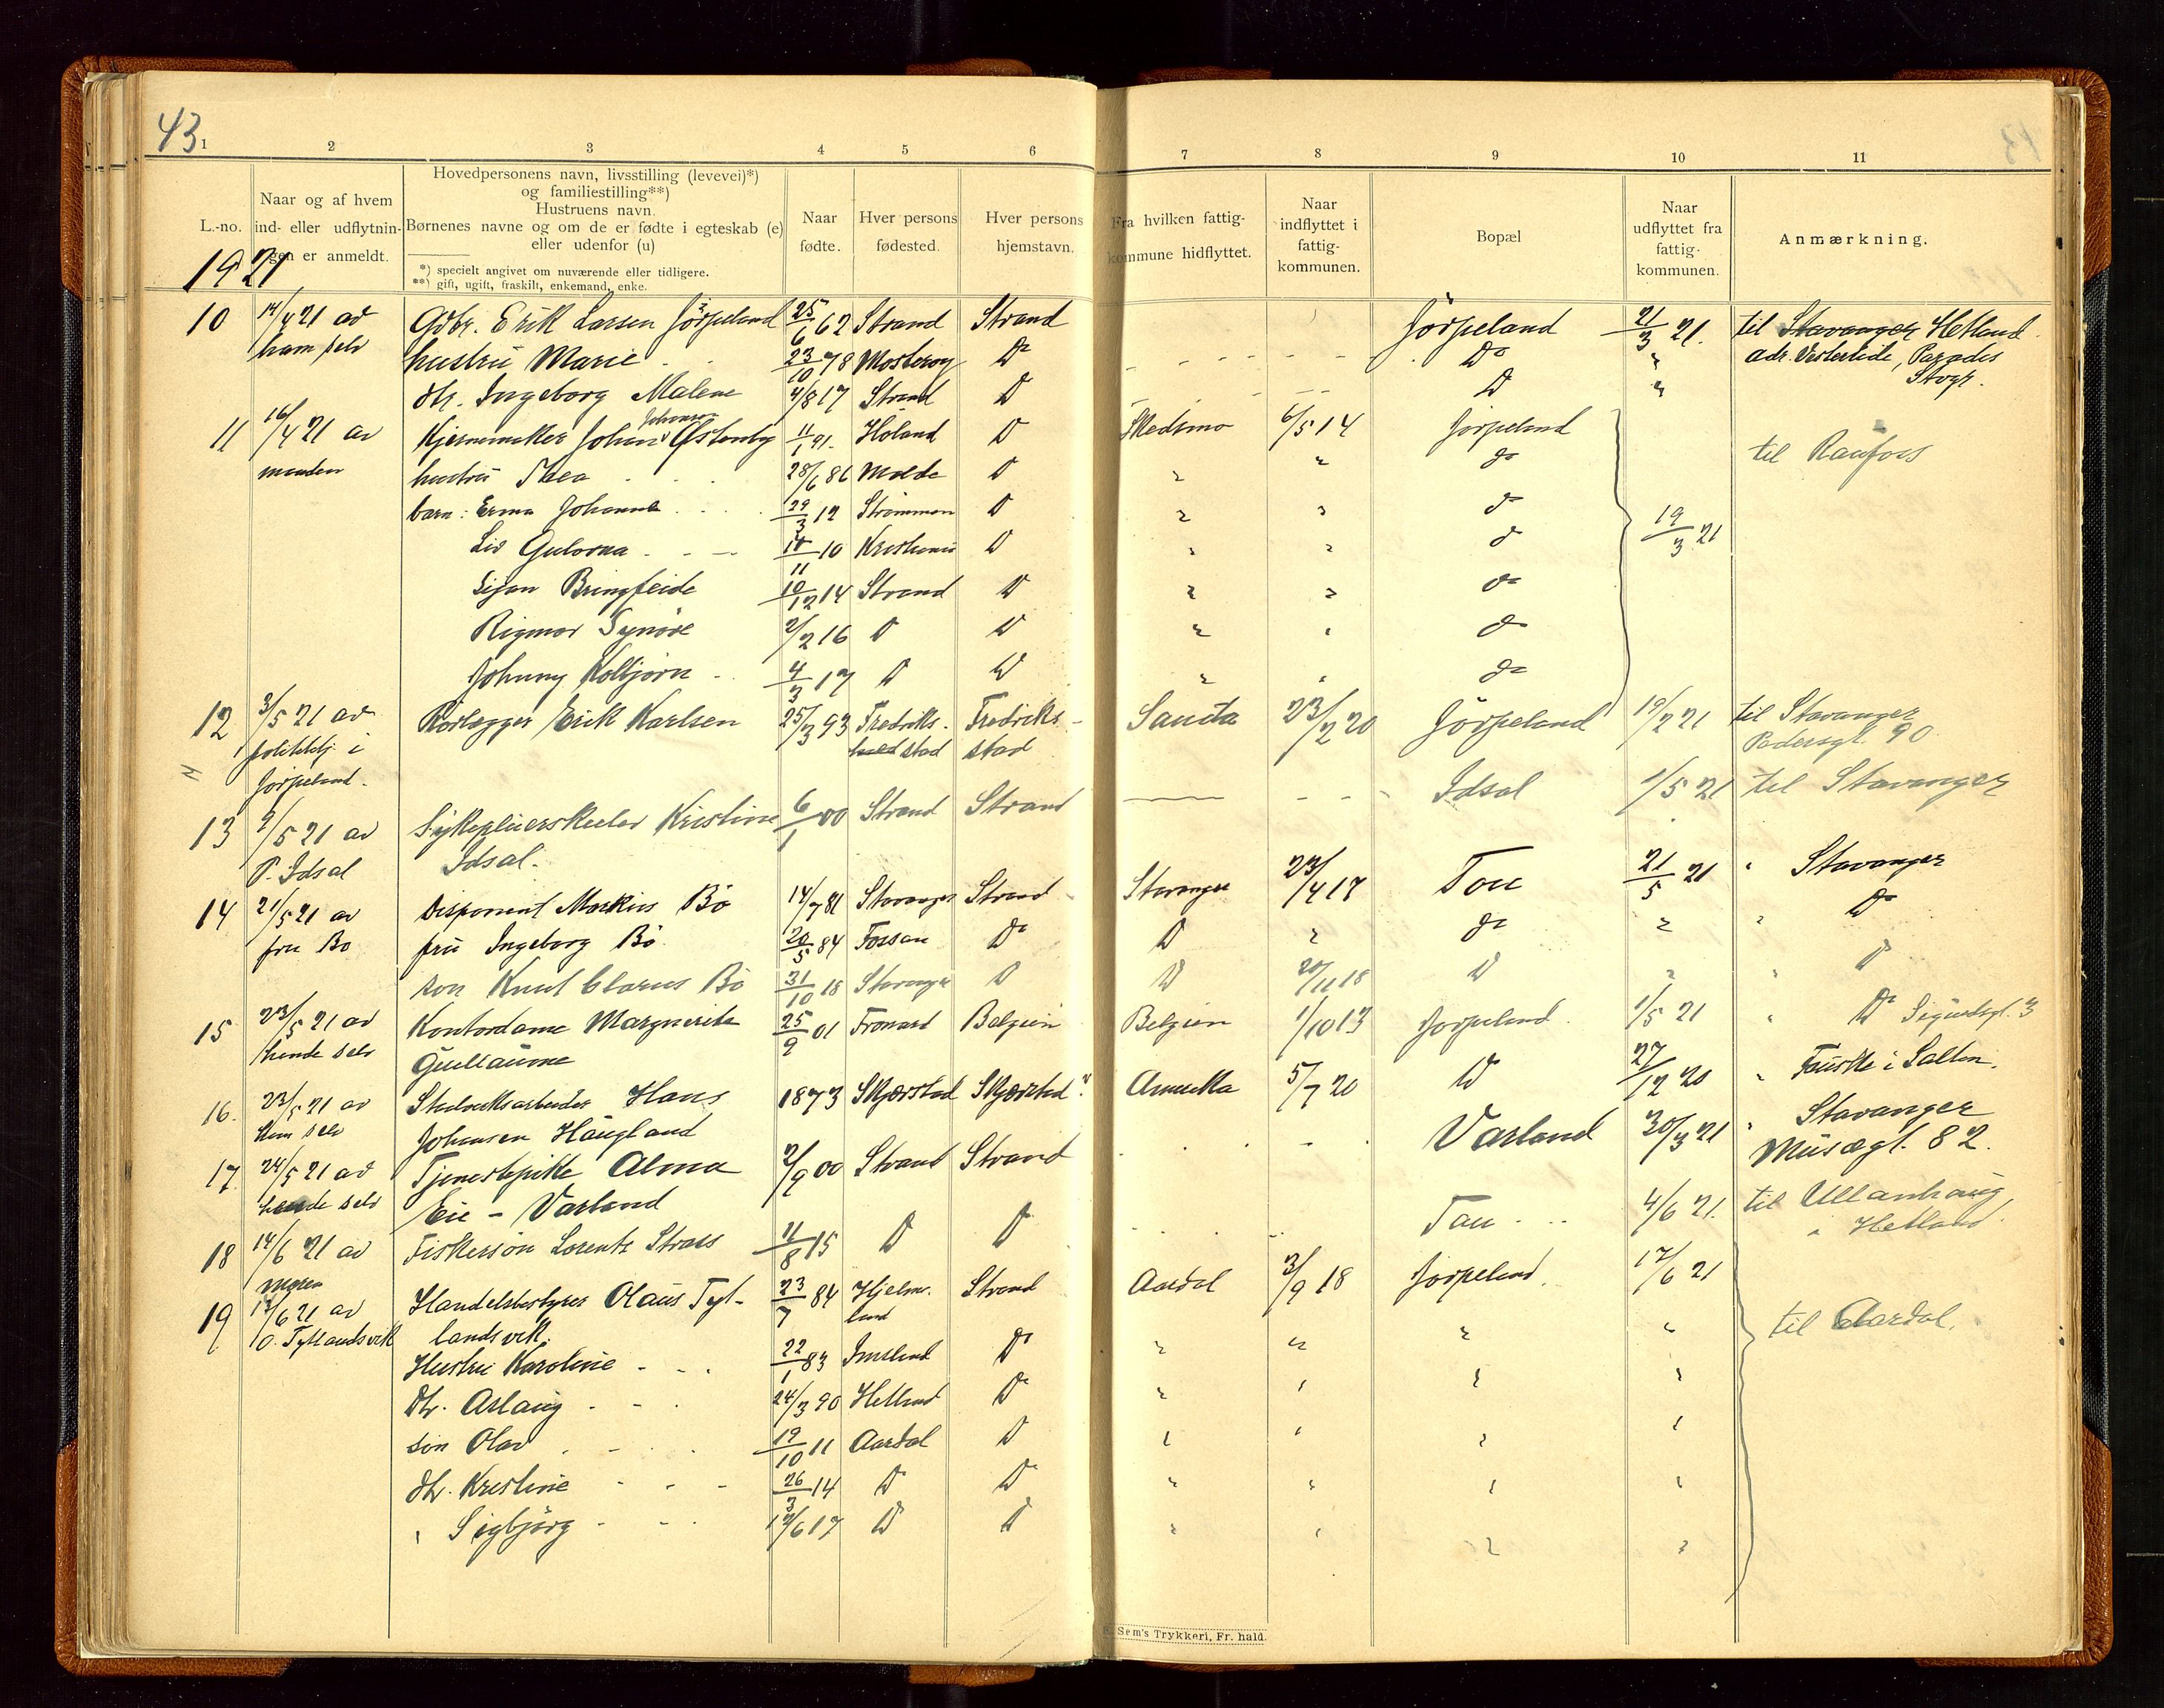 43
1 2 3 4 5 6 7 8 9 10 11
L.-no.
Naar og af hvem
ind- eller udflytnin-
gen er anmeldt.
Hovedpersonens navn, livsstilling (levevei)*)
og familiestilling**)
Hustruens navn.
Børnenes navne og om de er fødte i egteskab (e)
eller udenfor (u)
*) specielt angivet om nuværende eller tidligere.
**) gift, ugift, fraskilt, enkemand, enke.
Naar
fødte.
Hver persons
fødested.
Hver persons
hjemstavn.
Fra hvilken fattig-
kommune hidflyttet.
Naar
indflyttet i
fattig-
kommunen.
Bopæl
Naar
udflyttet fra
fattig-
kommunen.
Anmærkning.
1921
10 14/4 21 av Gdbr. Erik Larsen Jörpeland 25/6 62 Strand Strand Jörpeland 21/3 21. til Stavanger Hetland
ham selv hustru Marie 23/10 78 Mosterøy Do Do " adr. Vesterlide, Parades
dtr. Ingeborg Malene 4/8 17 Strand D D " Stvgr.
11 16/4 21 av Kjernemaker Johan Johansen Østenby 11/1 91. Höland D Skedsmo 6/5 14 Jörpeland til Raufoss
manden hustru Thea 28/6 86 Molde D " " do
barn: Erna Johanne 29/3 12 Strömmen D " " do 19/3 21
Liv Gulovna 10 Kristiania D " " do
10/12 14 Strand D " " do
Rigmor Synöve 2/2 16 D D " " do
Johnny Kolbjörn 4/3 17 D D " " do
12 3/5 21 av Rörlegger Erik Karlsen 25/3 93 Fredriks- Fredriks- Sauda 23/2 20 Jörpeland 19/2 21 til Stavanger
politiktj. i stad stad Pedersgt. 90
Jörpeland.
13 9/5 21 av Sykepleierskeelev Kristine 6/1 00 Strand Strand Idsal 1/5 21 til Stavanger
P. Idsal Idsal.
14 21/5 21 av Disponent Markus Bö 14/7 81 Stavanger Strand Stavanger 23/4 17 Tou 21/5 21 " Stavanger
fru Bö fru Ingeborg Bö. 20/5 84 Fossan Do D " do " " Do
sön Knut Clarus Bö 31/10 18 Stavanger D D 20/11 18 D " " D
15 23/5 21 av Kontordame Marguerite 25/9 01 Belgien Belgien 1/10 13 Jörpeland. 1/5 21 " Do Sigurdsgt. 3
hende selv Guillaume
16. 23/5 21 av Hans 1873 Skjerstad Skjerstad? Amerika 5/7 20 D 27/12 20 " Fauske i Salten.
ham selv Johansen Haugland
17 24/5 21 av Tjenestepike Alma 2/9 00 Strand Strand Varland 30/3 21 " Stavanger
hende selv Eie - Varland Musægt. 82.
18 14/6 21 av Fiskersön Lorents Strass 11/8 15 D D Tau 4/6 21. til Ullanhaug,
Moren " Hetland.
19 17/6 21 av Handelsbestyrer Olaus Tyt- 23/7 84 Hjelme- Strand Aardal 3/9 18 Jörpeland. 17/6 21
O. Tytlandsvik landsvik. land til Aardal.
Hustru Karoline 22/1 83 Imsland Do " " " "
dtr. Aslaug 24/3 90 Hetland Do " " " "
sön Olav 19/10 11 Aardal D " " " "
dtr. Kristine 26/3 14 D D " " " "
" Sigbjörg 17/6 17 D D " " " "
Sem's Trykkeri, Fr. hald.